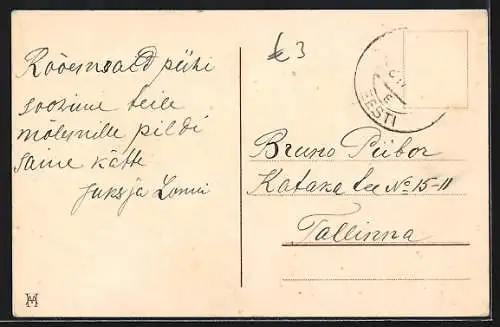 Rõõmsaid pühi
soovime teile
mõlemille pildi
saime kätte
Juks ja Lonni
£3
EESTI
Bruno Piibor
Kataka tee No 15-11
Tallinna
HM